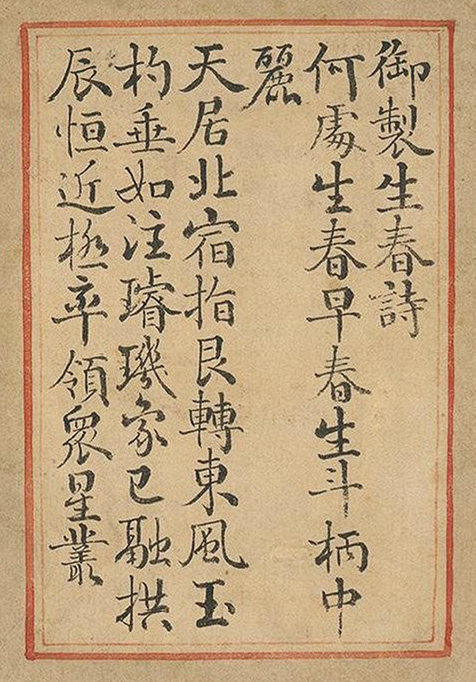 御製生春詩
何處生春早春生斗柄中
麗
天居北宿指艮轉東風玉
杓垂如注璿璣象已融拱
辰恒近極率領眾星叢